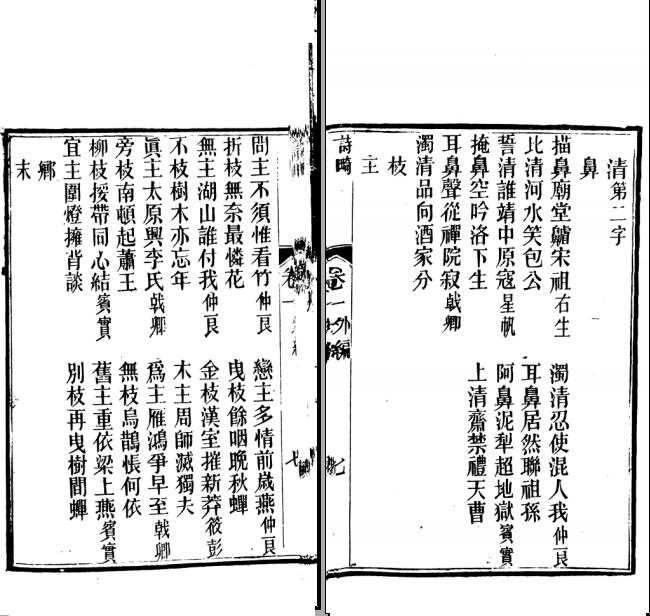 清第二字
鼻
描鼻廟堂鱸宋祖右生
濁清忍使混人我仲良
比清河水笑包公
耳鼻居然聯祖孫
誓清誰靖中原寇星帆
阿鼻泥犁超地獄賓實
掩鼻空吟洛下生
上清齋禁禮天曹
耳鼻聲從禪院寂戟卿
濁清品向酒家分
枝
主
詩畸
卷一外編
七
問主不須惟看竹仲良
戀主多情前歲燕仲良
折枝無奈最憐花
曳枝餘咽晚秋蟬
無主湖山誰付我仲良
金枝漢室摧新莽筱彭
不枝樹木亦忘年
木主周師滅獨夫
真主太原興李氏戟卿
為主雁鴻爭早至戟卿
旁枝南頓起蕭王
無枝烏鵲悵何依
柳枝援帶同心結賓實
舊主重依梁上燕賓實
宜主圍燈擁背談
別枝再曳樹間蟬
鄉
末